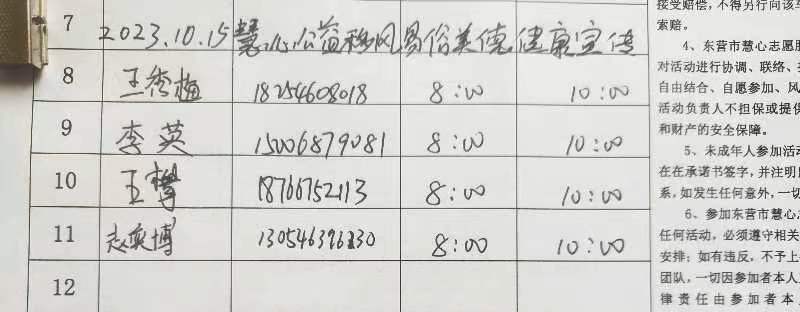 7 2023.10.15慧心公益移风易俗美德健康宣传
8 王秀梅 18254608018 8:00 10:00
9 李英 15006879081 8:00 10:00
10 王 18766752113 8:00 10:00
11 赵奕博 8:00 10:00
12
接受赔偿，不得另行向该
索赔。
4、东营市慧心志愿服
对活动进行协调、联络、
自由结合、自愿参加、风
活动负责人不担保或提供
和财产的安全保障。
5、未成年人参加活动
在在承诺书签字，并注明
系，如发生任何意外，一切
6、参加东营市慧心志
任何活动，必须遵守相关
安排；如有违反，不予上
团队，一切因参加者本人
律责任由参加者本人